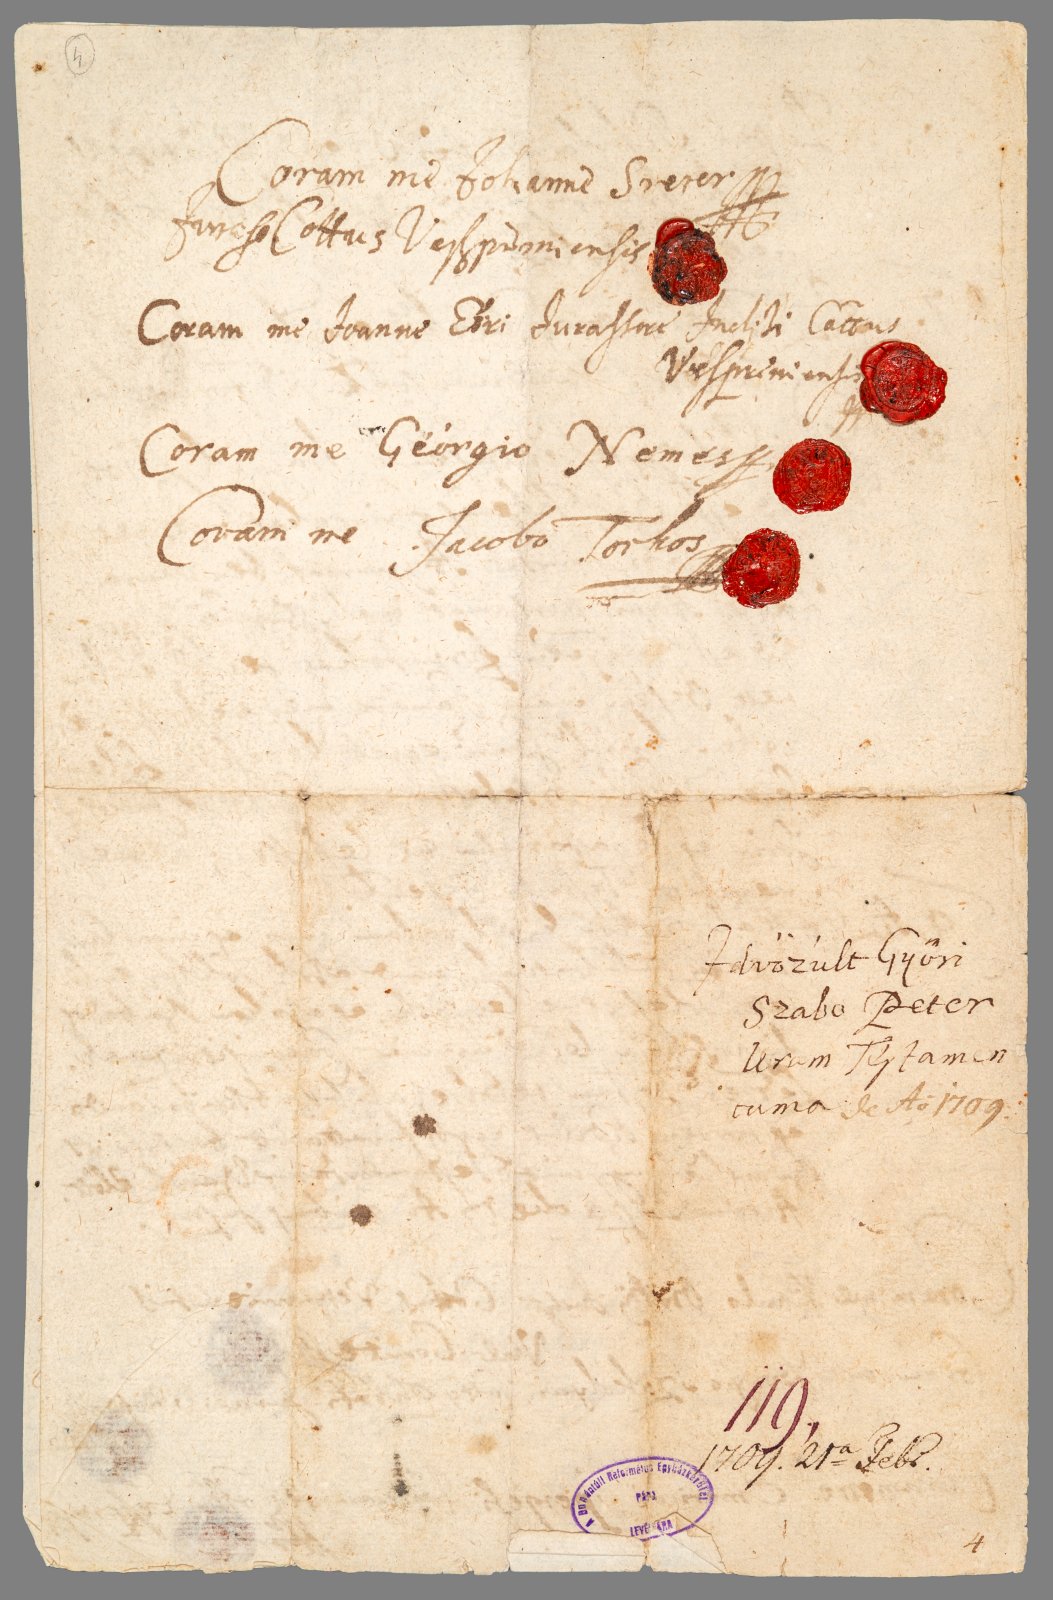 4
Coram me Johanne Sreter
Cottus Veszpremiensis
Coram me Joanne Eöri Jurassore Incliti Cottus
Veszpremiensis
Coram me Geörgio Nemes
Coram me Jacobo Torkos
Idvözült Györi
Szabo Peter
Uram Testamen
tuma de Ao 1709.
119.
1709. 21a Febr.
A Dunántúli Református Egyházkerület
PÁPA
LEVÉLTÁRA
4